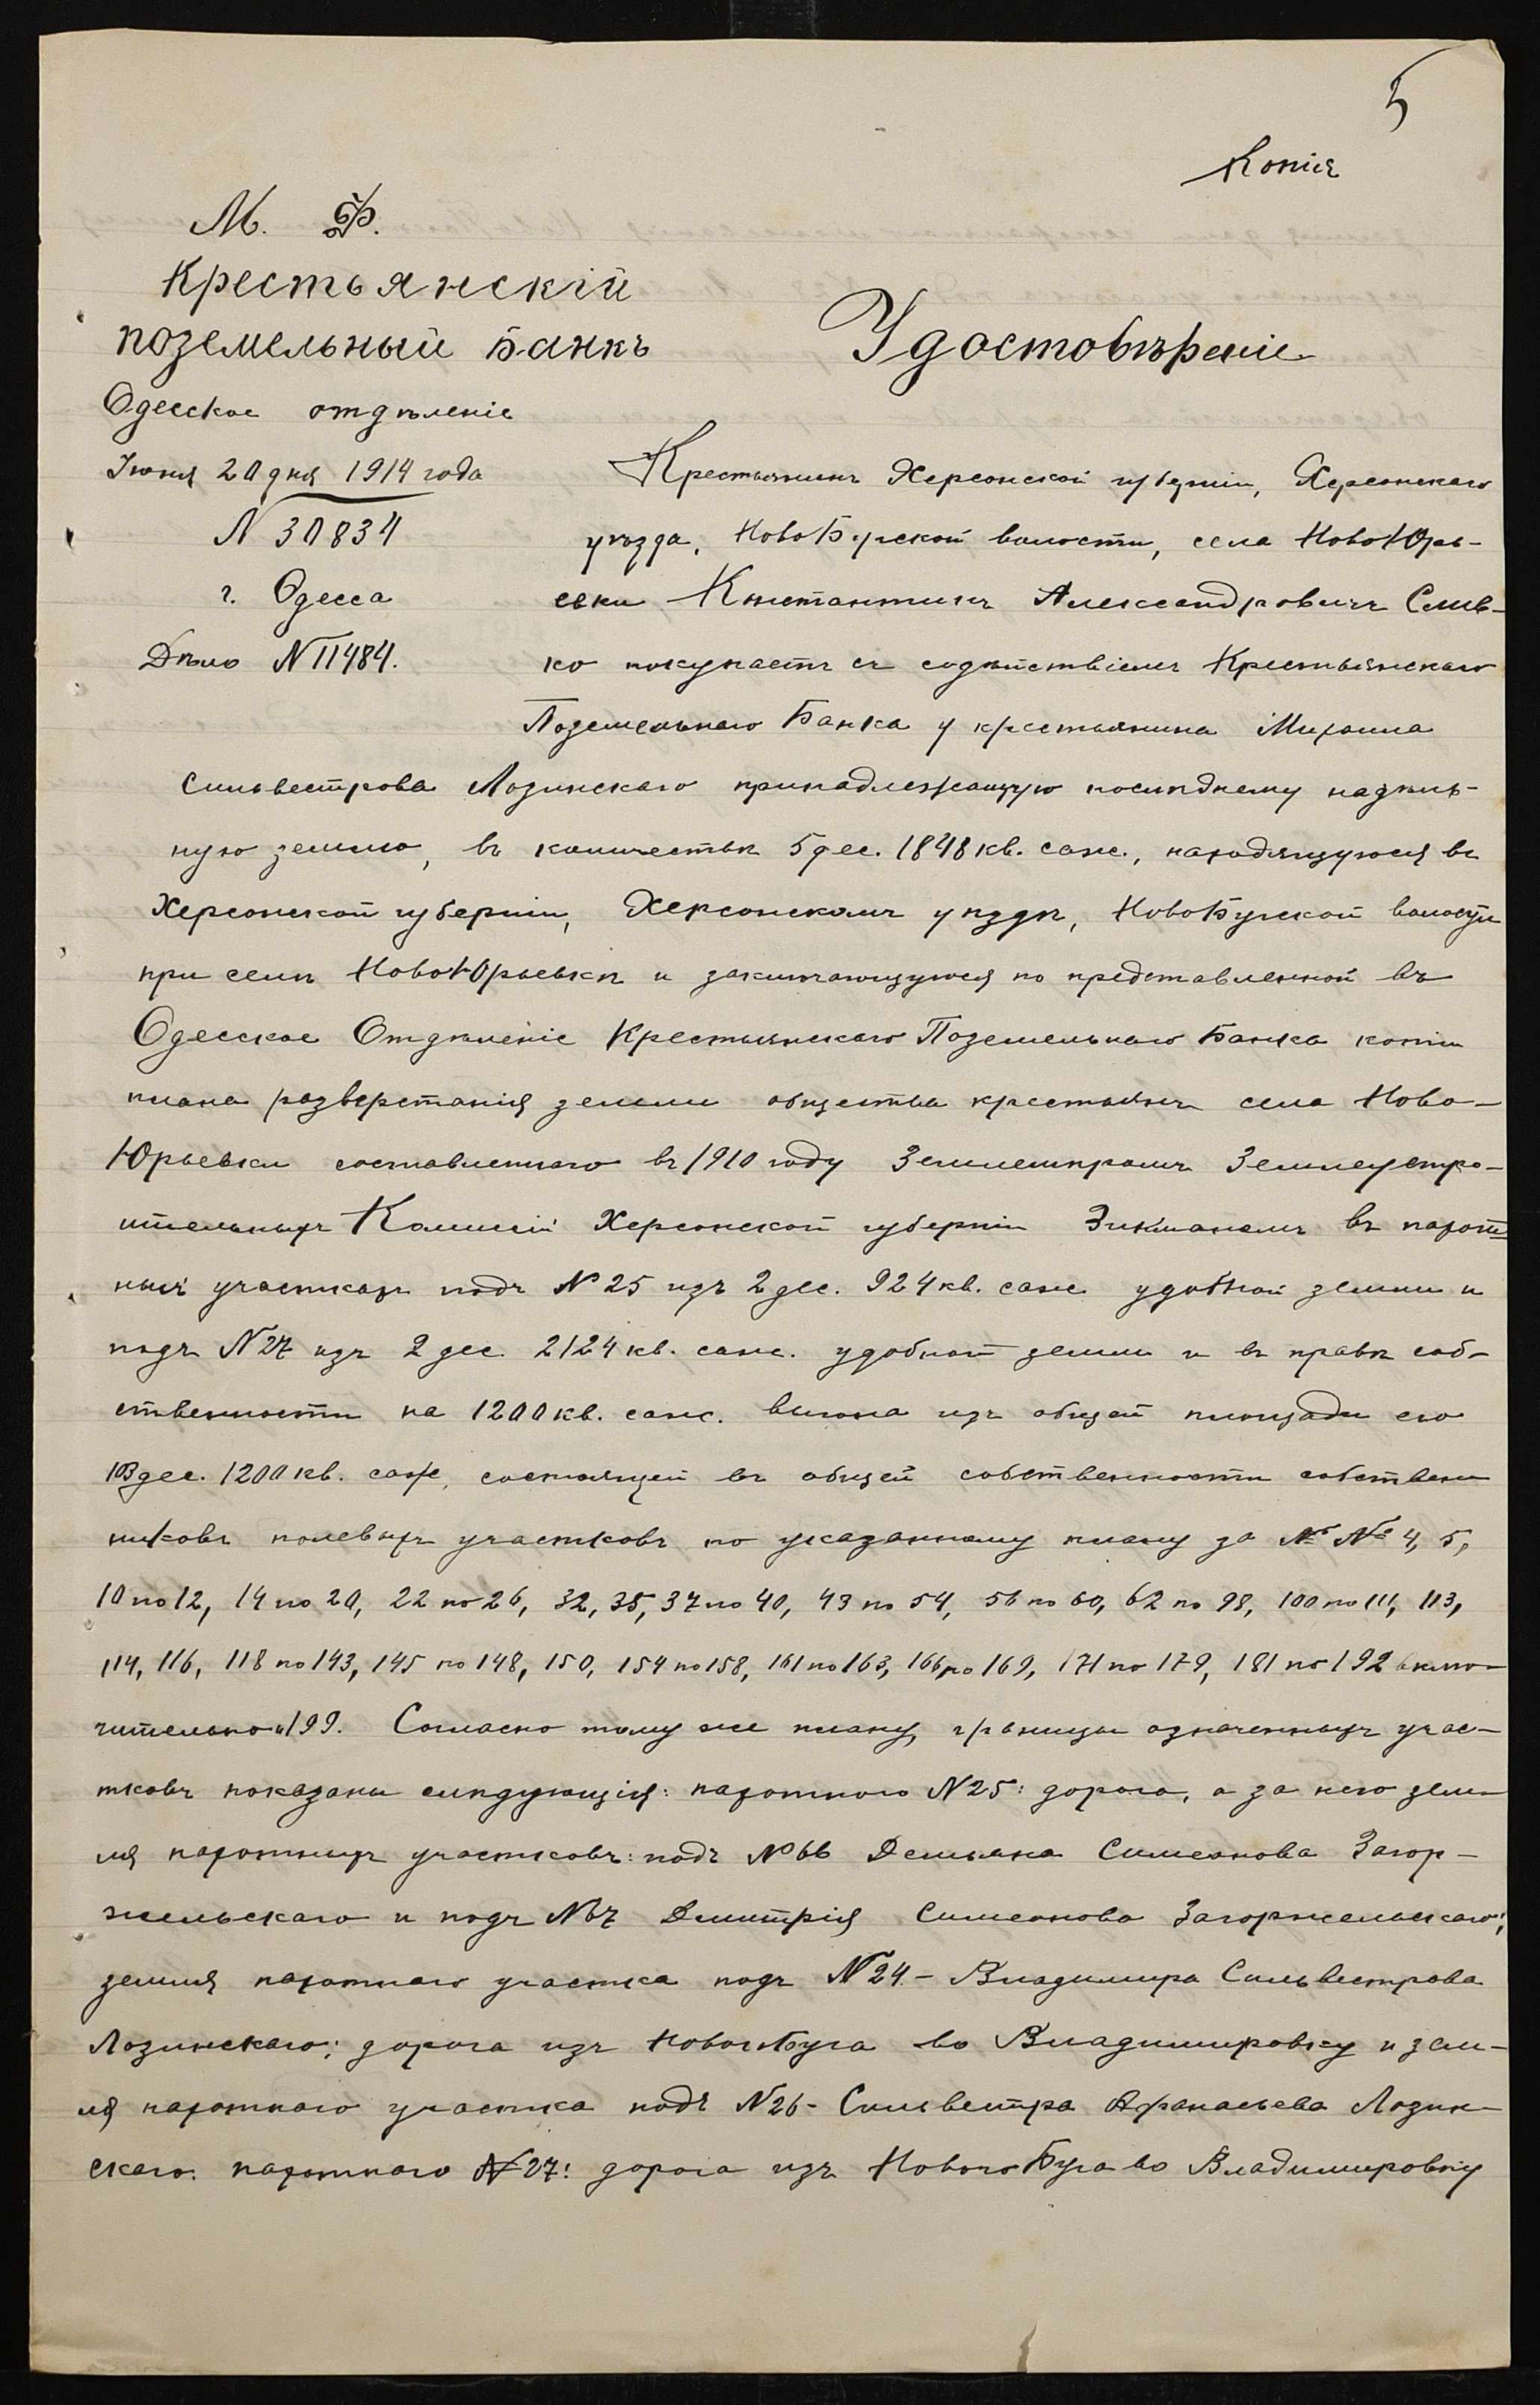 5
Копія
М. Ф.
Крестьянскій
поземельный Банкъ
Одесское отдѣленіе
Іюня 20 дня 1914 года
N 30834
г. Одесса
Дѣло N 11484.
Удостовѣреніе
Крестьянинъ Херсонской губерніи, Херсонскаго
уѣзда, НовоБугской волости, села НовоЮрь-
евки Констан­тинъ Александровичъ Слив-
ко покупаетъ съ содѣйствіемъ Крестьянскаго
Поземельнаго Банка у крестьянина Михаила
Сильвестрова Лозинскаго принадлежащую послѣднему надѣль-
ную землю, въ количествѣ 5 дес. 1848 кв. саж., находящуюся въ
Херсонской губерніи, Херсонскомъ уѣздѣ, НовоБугской волости
при селѣ НовоЮрьевкѣ и заключающуюся по представленной въ
Одесское Отдѣленіе Крестьянскаго Поземельнаго Банка копіи
плана разверстанія земли общества крестьянъ села Ново-
Юрьевки составленнаго въ 1910 году Землемѣромъ Землеустро-
ительныхъ Комиссій Херсонской губерніи Зикманомъ въ пахот-
ныхъ участкахъ подъ № 25 изъ 2 дес. 924 кв. саж. удобной земли и
подъ N 27 изъ 2 дес. 2124 кв. саж. удобной земли и въ правѣ соб-
ственности на 1200 кв. саж. выгона изъ общей площади его
103 дес. 1200 кв. саж, состоящей въ общей собственности собствен
никовъ полевыхъ участковъ по указанному плану за №№ 4, 5,
10 по 12, 14 по 20, 22 по 26, 32, 35, 37 по 40, 43 по 54, 56 по 60, 62 по 98, 100 по 111, 113,
114, 116, 118 по 143, 145 по 148, 150, 154 по 158, 161 по 163, 166 по 169, 171 по 179, 181 по 192 вклю-
чительно и 199. Согласно тому же плану, границы означенныхъ учас-
тковъ показаны слѣдующія: пахотного N 25: дорога, а за нею зем-
ля пахотныхъ участковъ: подъ № 66 Демьяна Симеонова Загор-
жельскаго и подъ N 67 Дмитрія Симеонова Загоржельскаго;
земля пахотнаго участка подъ N 24 - Владимира Сильвестрова
Лозинскаго; дорога изъ Новаго Буга во Владимировку и зем-
ля пахотнаго участка подъ N 26 - Сильвестра Афанасьева Лозин-
скаго: пахотнаго N 27: дорога изъ Новаго Буга во Владимировку